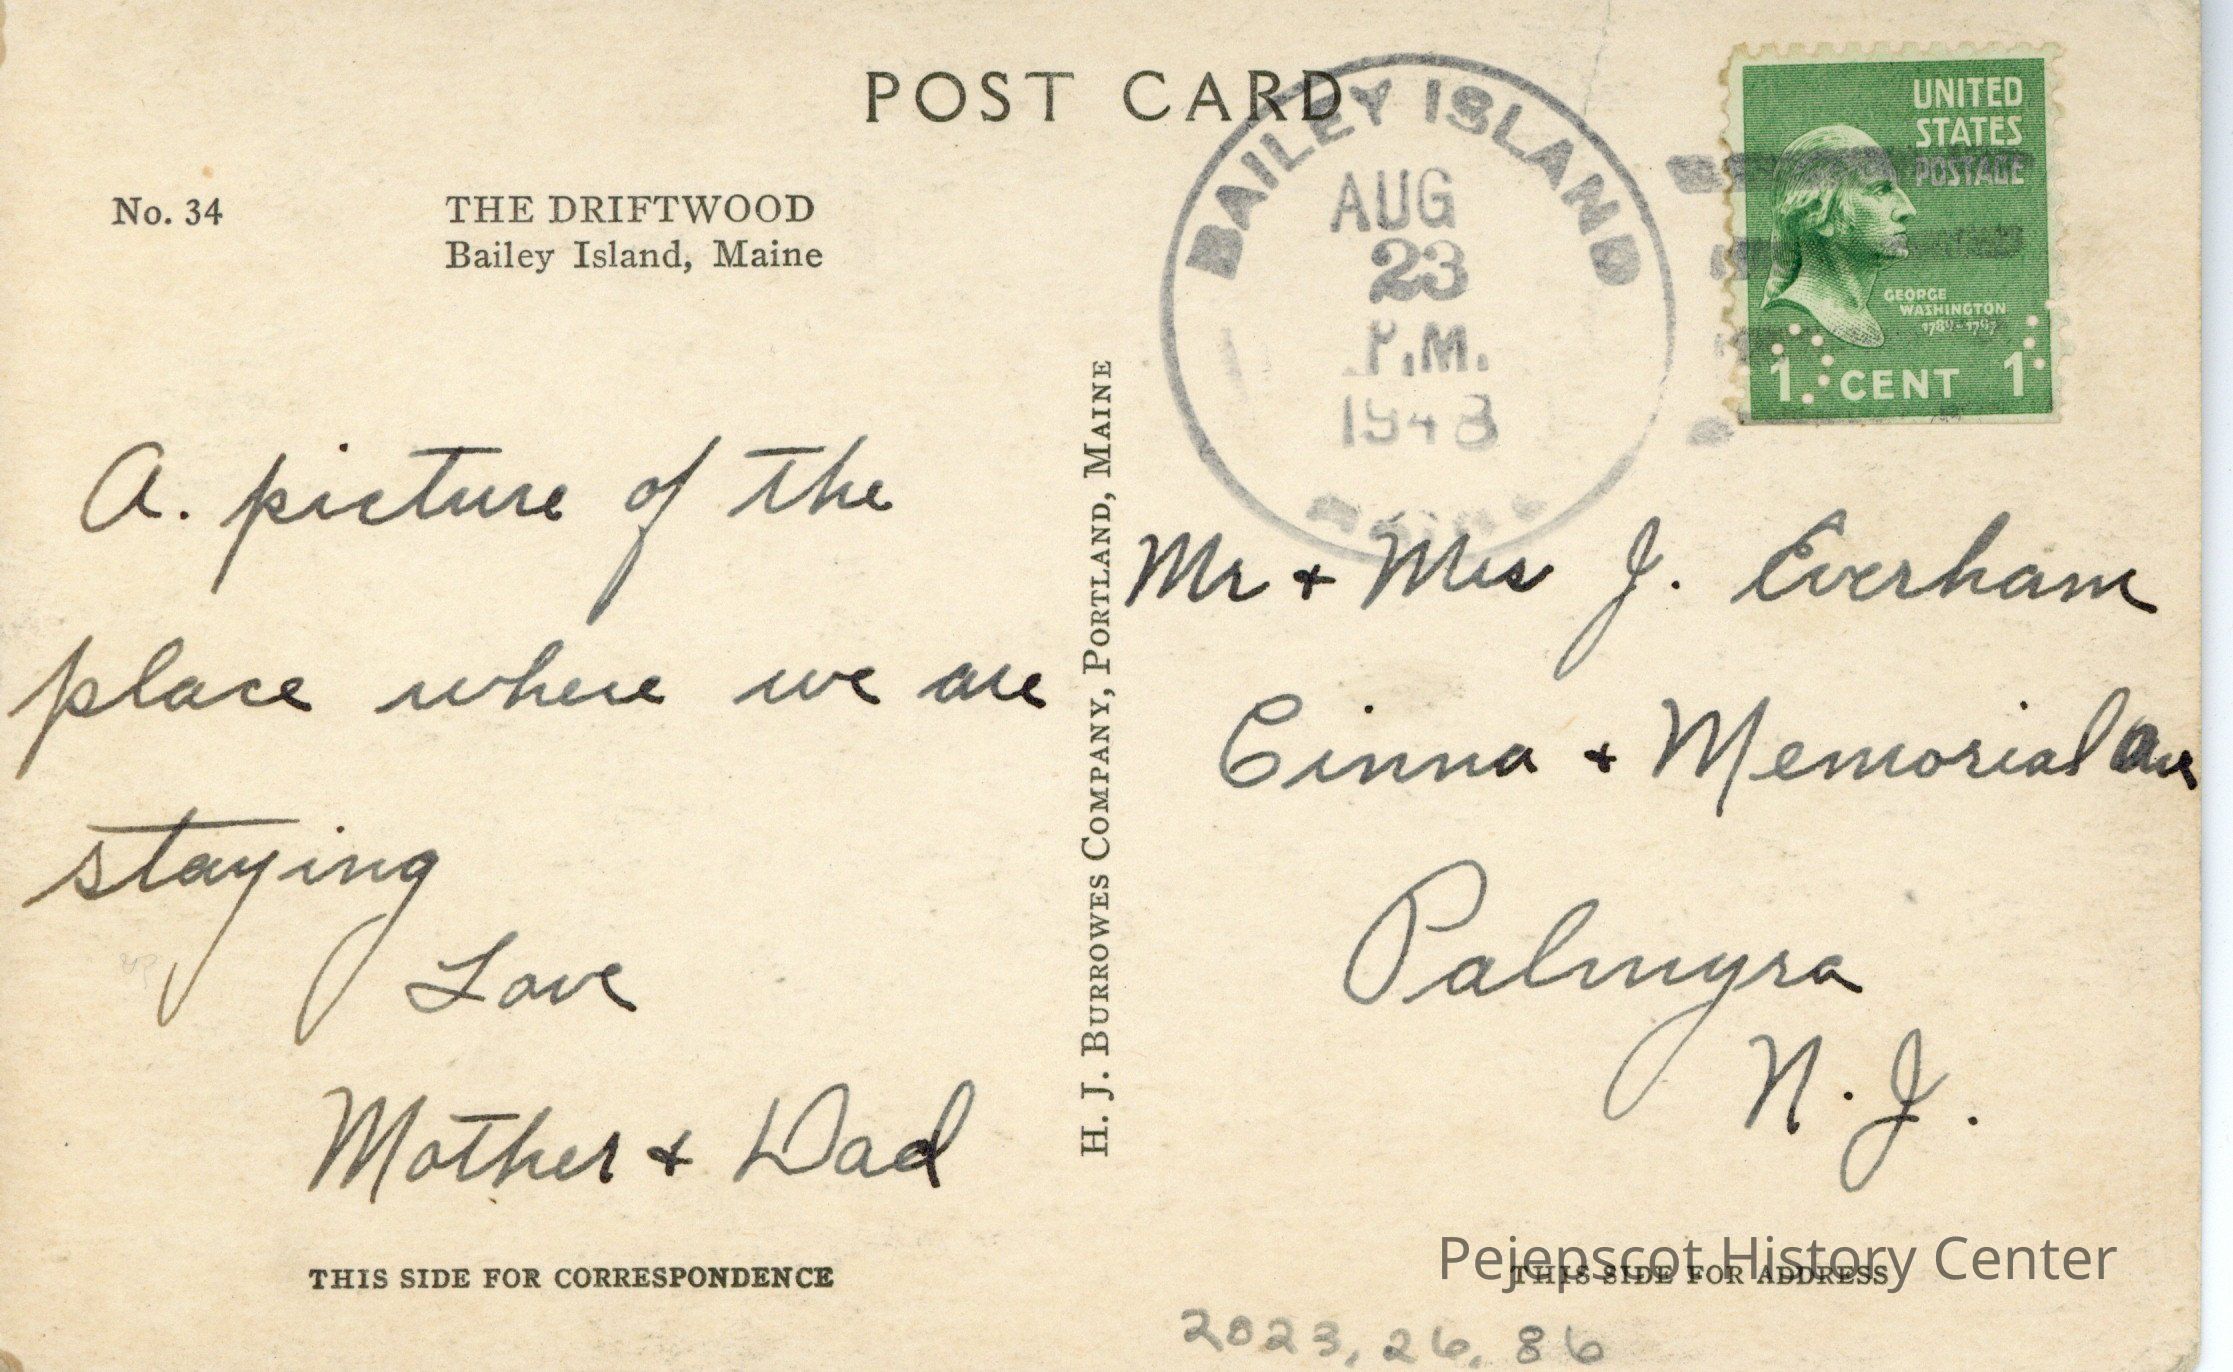 POST CARD
No. 34
THE DRIFTWOOD
Bailey Island, Maine
BAILEY ISLAND
AUG
23
P.M.
1948
UNITED
STATES
POSTAGE
GEORGE
WASHINGTON
1789-1797
1 CENT 1
A. picture of the
place where we are
staying
Love
Mother + Dad
THIS SIDE FOR CORRESPONDENCE
H. J. BURROWES COMPANY, PORTLAND, MAINE
Mr + Mrs J. Everham
Cinna + Memorial Ave
Palmyra
N. J.
THIS SIDE FOR ADDRESS
Pejepscot History Center
2023.26.86